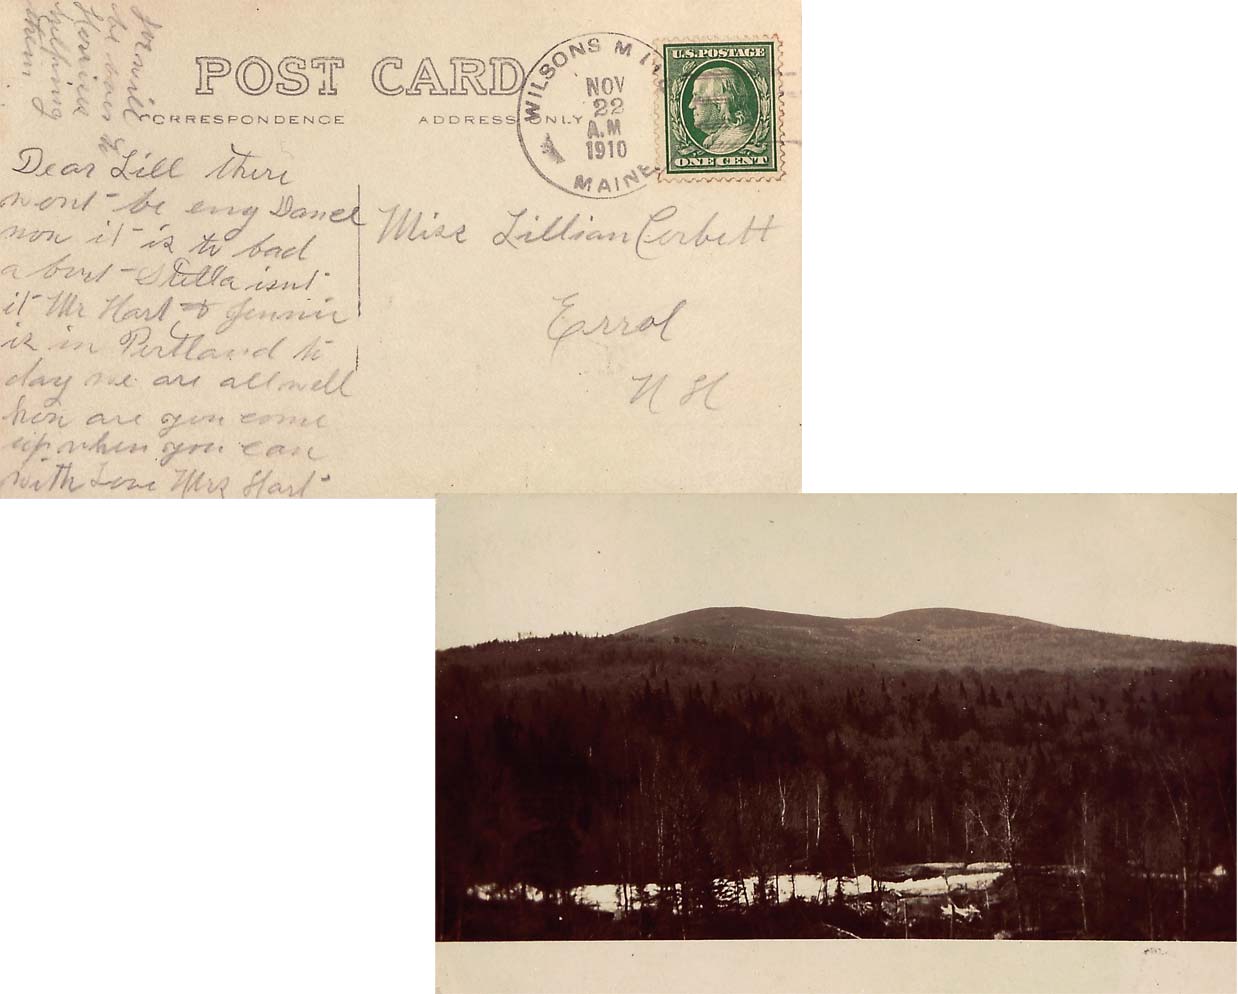 POST CARD
CORRESPONDENCE
ADDRESS ONLY
WILSONS MILL
NOV
22
A.M
1910
MAINE
U.S. POSTAGE
ONE CENT
Dear Lill there
wont be eny Dance
now it is to bad
a bout Stella isnt
it Mr Hart & Jennie
is in Portland to
day we are all well
how are you come
up when you can
with Love Mrs Hart
will
be over to
helping
them
Miss Lillian Corbett
Errol
N H